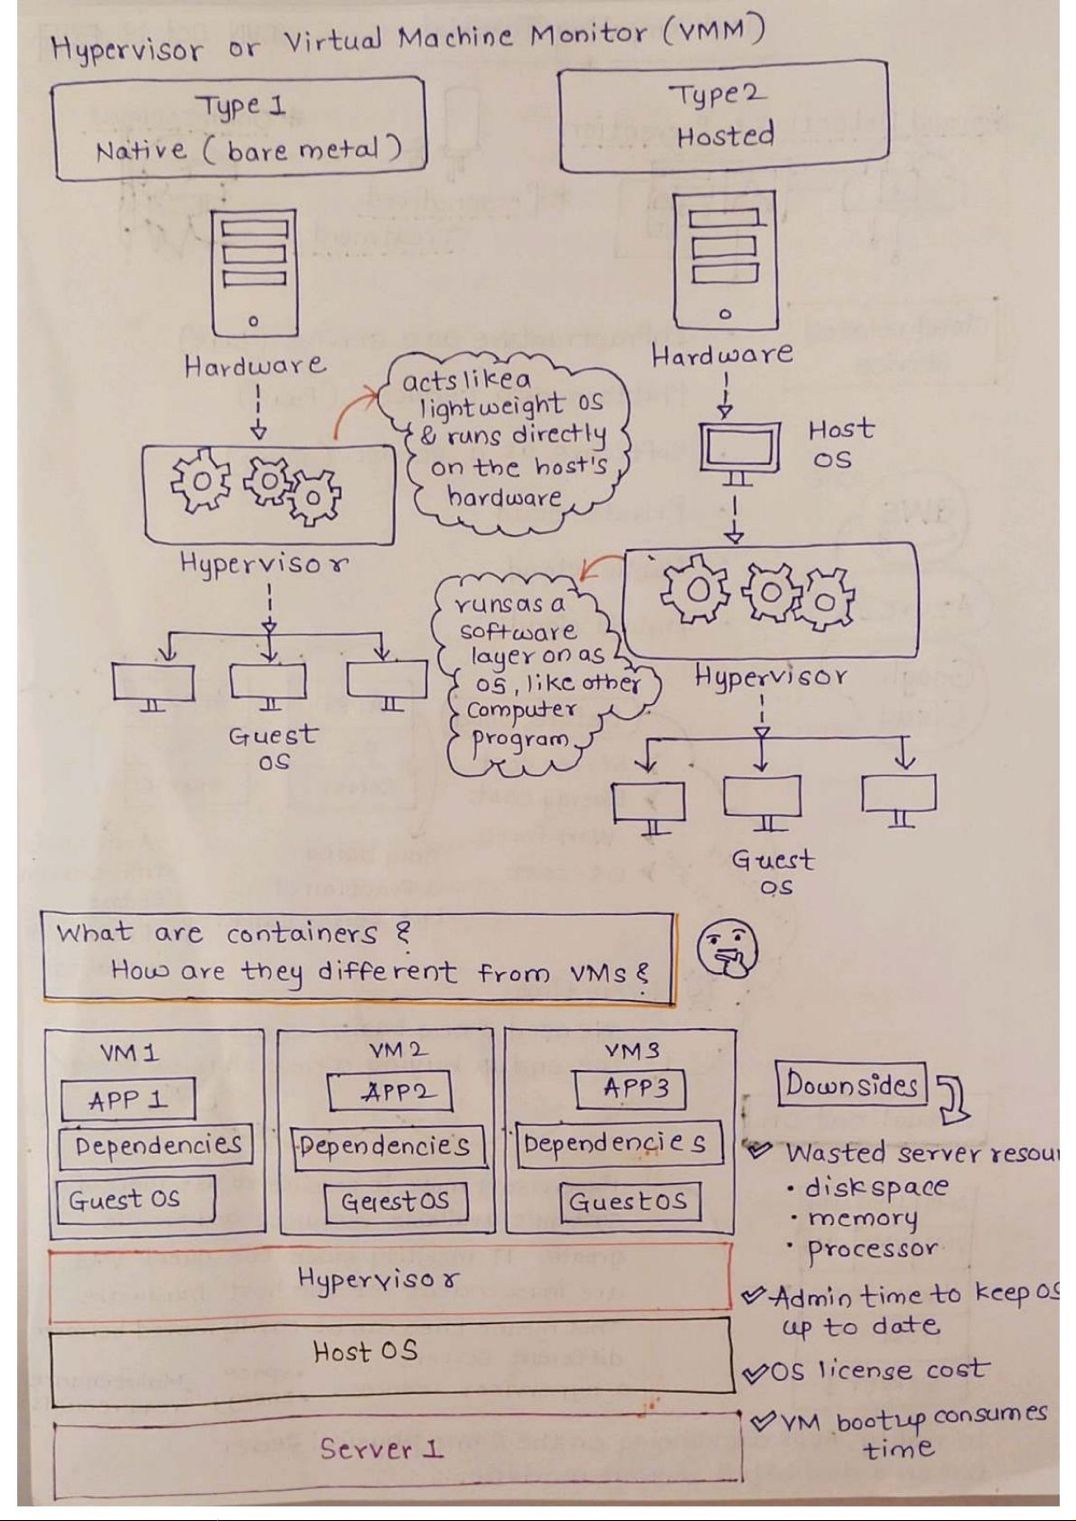 Hypervisor or Virtual Machine Monitor (VMM)
Type 1
Native (bare metal)
Type 2
Hosted
Hardware
acts like a
lightweight OS
& runs directly
on the host's
hardware
Hypervisor
Guest
OS
Hardware
Host
OS
runs as a
software
layer on as
OS, like other
computer
program
Hypervisor
Guest
OS
What are containers ?
How are they different from VMs ?
VM 1
APP 1
Dependencies
Guest OS
VM 2
APP2
Dependencies
Gerest OS
VM3
APP3
Dependencies
Guest OS
Hypervisor
Host OS
Server 1
Downsides
Wasted server resou
• disk space
• memory
• processor
Admin time to keep OS
up to date
OS license cost
VM bootup consumes
time